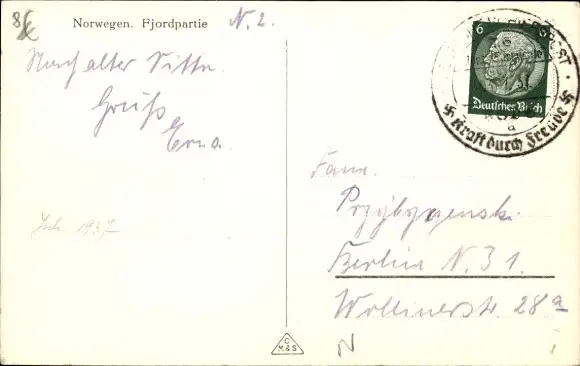 Norwegen. Fjordpartie
N. 2.
Nach alter Sitte
Gruß
Erna.
Juli 1937
6
Deutsches Reich
Kraft durch Freude
a
Fam.
Przybyzenski.
Berlin N. 31.
Wollinerstr. 28a
C
M&S
N